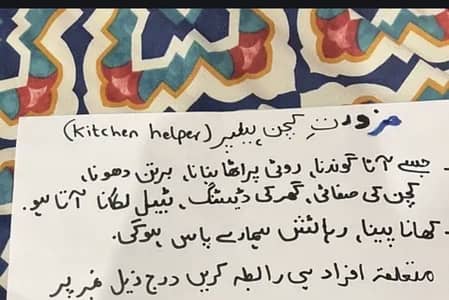 ضرورت کچن ہیلپر (Kitchen helper)
جسے آٹا گوندنا، روٹی پراٹھا بنانا، برتن دھونا،
کچن کی صفائی، گھر کی ڈسٹنگ، ٹیبل لگانا آتا ہو.
کھانا پینا، رہائش ہمارے پاس ہوگی.
متعلقہ افراد ہی رابطہ کریں درج ذیل نمبر پر